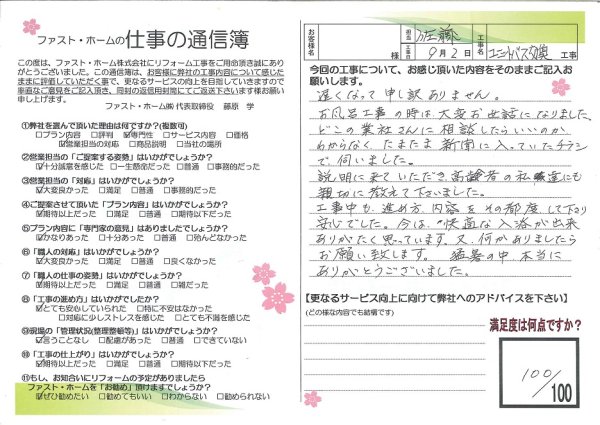 ファスト・ホームの仕事の通信簿
この度は、ファスト・ホーム株式会社にリフォーム工事をご用命頂き誠にあり
がとうございました。この通信簿は、お客様に弊社の工事内容について感じた
ままに評価していただく事で、更なるサービスの向上を目指していきますので
率直なご意見をご記入頂き、同封の返信用封筒にてご返送下さいます様お願い
申し上げます。
ファスト・ホーム㈱ 代表取締役 藤原 学
①弊社を選んで頂いた理由は何ですか?(複数可)
□プラン内容 □評判 ☑専門性 □サービス内容 □価格
☑営業担当の対応 □商品説明 □当社の場所
②営業担当の「ご提案する姿勢」はいかがでしょうか?
☑十分誠意を感じた □一生懸命だった □普通 □事務的だった
③営業担当の「対応」はいかがでしょうか?
☑大変良かった □満足 □普通 □事務的だった
④ご提案させて頂いた「プラン内容」はいかがでしょうか?
☑期待以上だった □満足 □普通 □期待以下だった
⑤プラン内容に「専門家の意見」はありましたでしょうか?
☑かなりあった □十分あった □普通 □殆んどなかった
⑥「職人の対応」はいかがでしょうか?
☑大変良かった □満足 □普通 □良くなかった
⑦「職人の仕事の姿勢」はいかがでしょうか?
☑期待以上だった □満足 □普通 □雑だった
⑧「工事の進め方」はいかがでしたか?
☑とても安心していられた □特に不安はなかった
□対応に少しストレスを感じた □とても不満を感じた
⑨現場の「管理状況(整理整頓等)」はいかがでしたか?
☑言うことなし □配慮があった □普通 □できていない
⑩「工事の仕上がり」はいかがでしょうか?
☑期待以上だった □満足 □普通 □期待以下だった
⑪もし、お知合いにリフォームの予定がありましたら
ファスト・ホームを「お勧め」頂けますでしょうか?
☑ぜひ勧めたい □勧めてもいい □わからない □勧められない
お客様名
様
担当
佐藤
工事日
9月2日
工事名
ユニットバス交換 工事
今回の工事について、お感じ頂いた内容をそのままご記入お
願いします。
遅くなって申し訳ありません。
お風呂工事の時は大変お世話になりました。
どこの業社さんに相談したらいいのか
わからなく、たまたま新聞に入っていたチラシ
で伺いました。
説明に来ていただき、高齢者の私達にも
親切に教えて下さいました。
工事中も、進め方、内容をその都度、して下さり
安心でした。今は、快適な入浴が出来
ありがたく思っています。又、何かありましたら
お願い致します。猛暑の中、本当に
ありがとうございました。
【更なるサービス向上に向けて弊社へのアドバイスを下さい】
(どの様な内容でも結構です)
満足度は何点ですか?
100/100